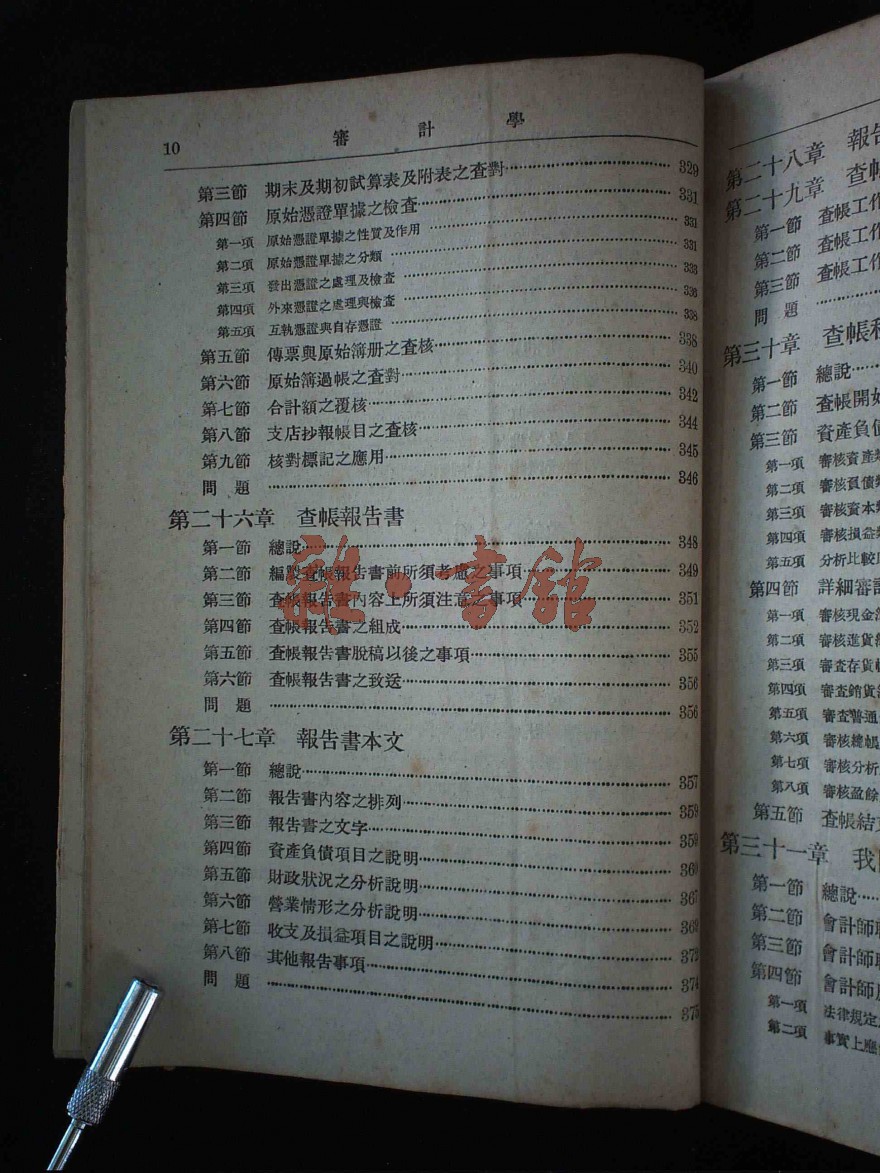 10 審計學
第三節 期末及期初試算表及附表之查對 329
第四節 原始憑證單據之檢查 331
第一項 原始憑證單據之性質及作用 331
第二項 原始憑證單據之分類 331
第三項 發出憑證之處理及檢查 333
第四項 外來憑證之處理與檢查 336
第五項 互執憑證與自存憑證 338
第五節 傳票與原始簿册之查核 338
第六節 原始簿過帳之查對 340
第七節 合計額之覆核 342
第八節 支店抄報帳目之查核 344
第九節 核對標記之應用 345
問題 346
第二十六章 查帳報告書
第一節 總說 348
第二節 編製查帳報告書前所須考慮之事項 349
第三節 查帳報告書內容上所須注意之事項 351
第四節 查帳報告書之組成 352
第五節 查帳報告書脫稿以後之事項 355
第六節 查帳報告書之致送 356
問題 356
第二十七章 報告書本文
第一節 總說 357
第二節 報告書內容之排列 358
第三節 報告書之文字 359
第四節 資產負債項目之說明 360
第五節 財政狀況之分析說明 367
第六節 營業情形之分析說明 369
第七節 收支及損益項目之說明 373
第八節 其他報告事項 374
問題 375
雜·書館
第二十八章 報告
第二十九章 查帳
第一節 查帳工作
第二節 查帳工作
第三節 查帳工作
問題
第三十章 查帳程
第一節 總說
第二節 查帳開始
第三節 資產負債
第一項 審核資產類
第二項 審核負債類
第三項 審核資本
第四項 審核損益
第五項 分析比較
第四節 詳細審
第一項 審核現金
第二項 審核進貨
第三項 審查存貨
第四項 審查銷貨
第五項 審查普通
第六項 審核總帳
第七項 審核分析
第八項 審核盈餘
第五節 查帳結
第三十一章 我
第一節 總說
第二節 會計師
第三節 會計師
第四節 會計師
第一項 法律規定
第二項 事實上應